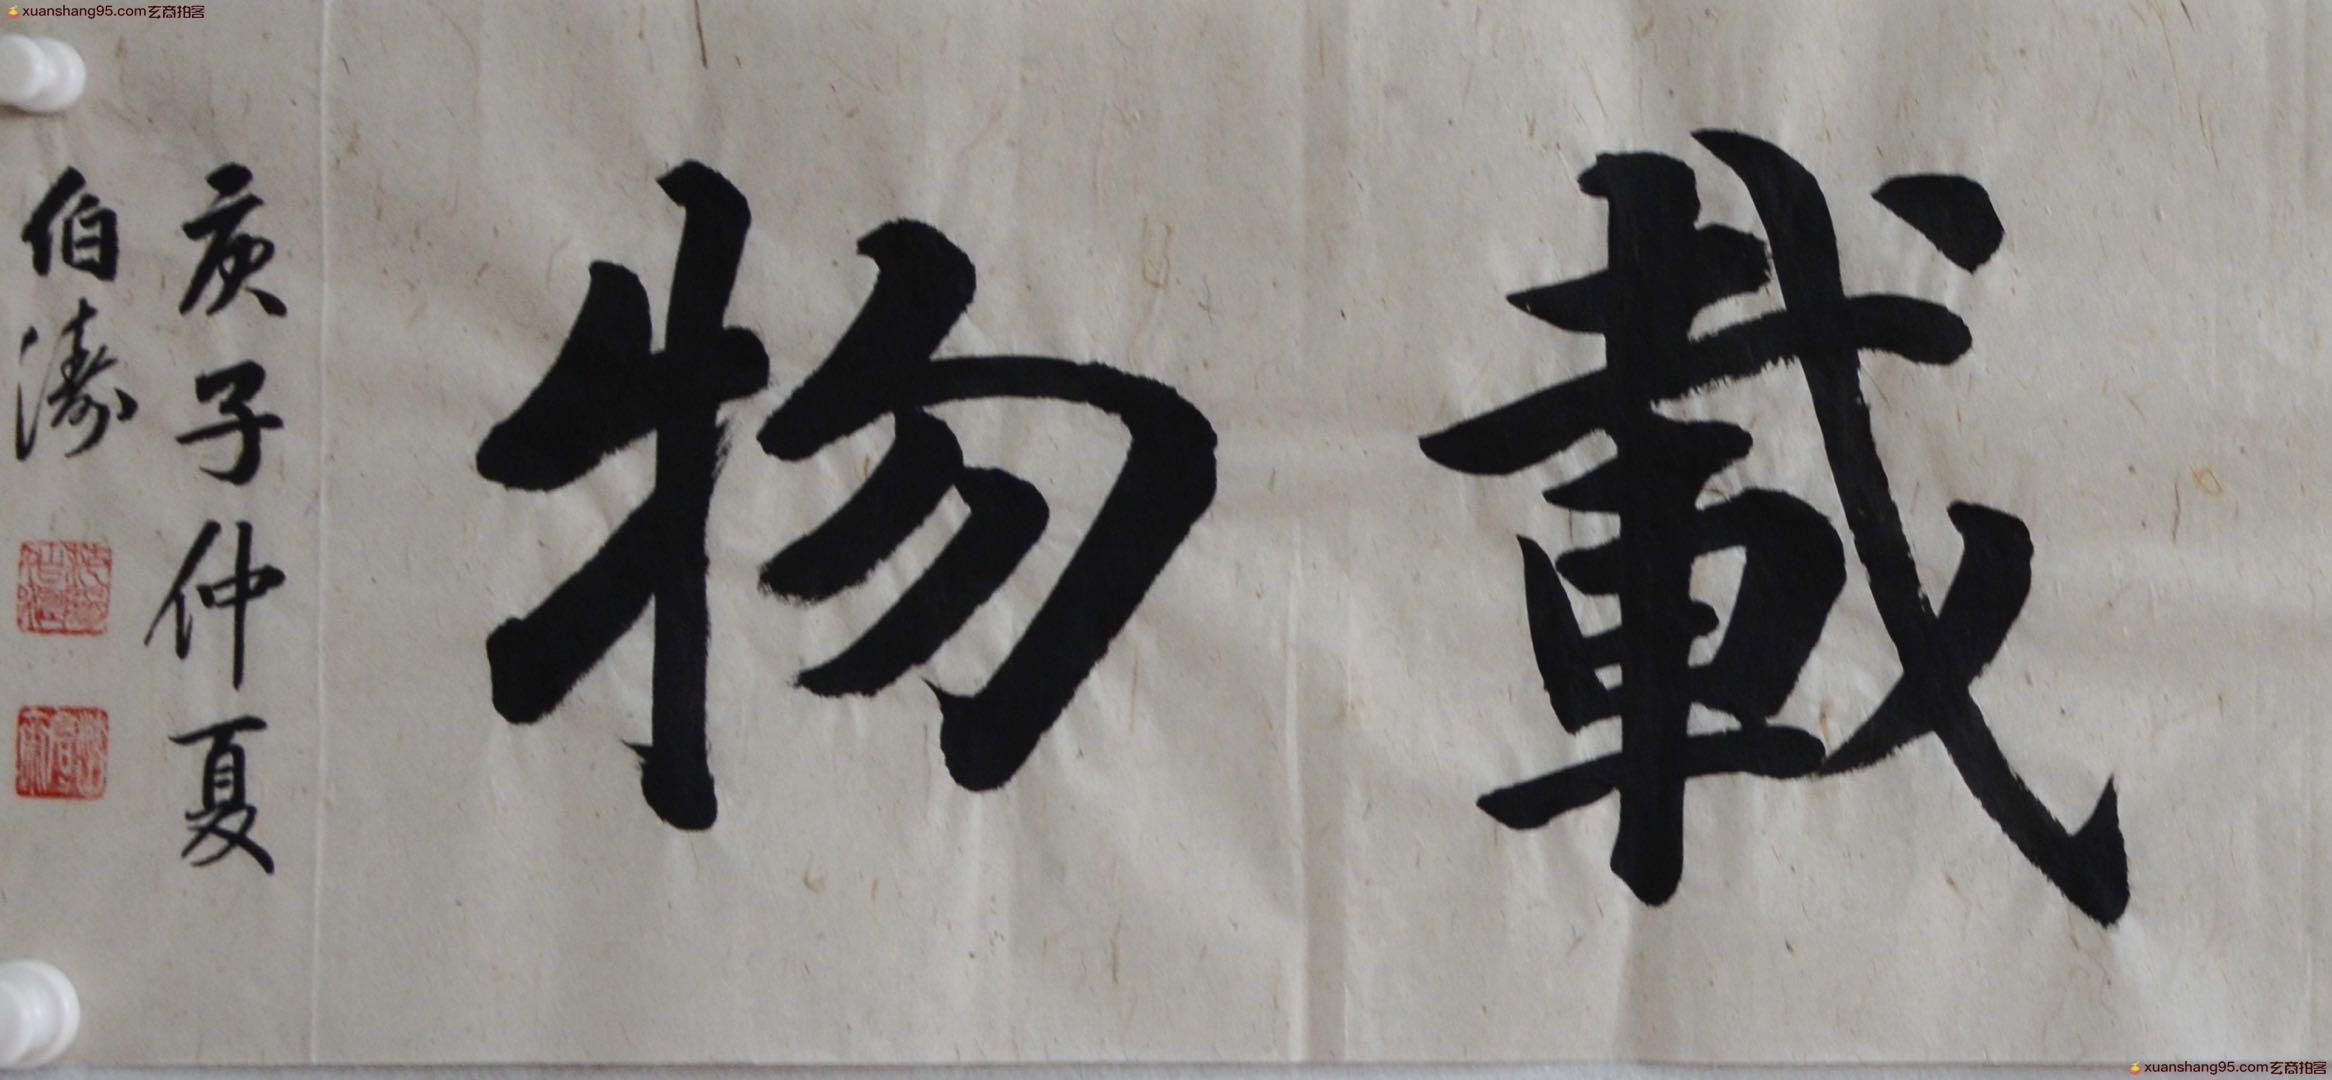 載物
庚子仲夏
伯濤
xuanshang95.com玄商拍客
xuanshang95.com玄商拍客